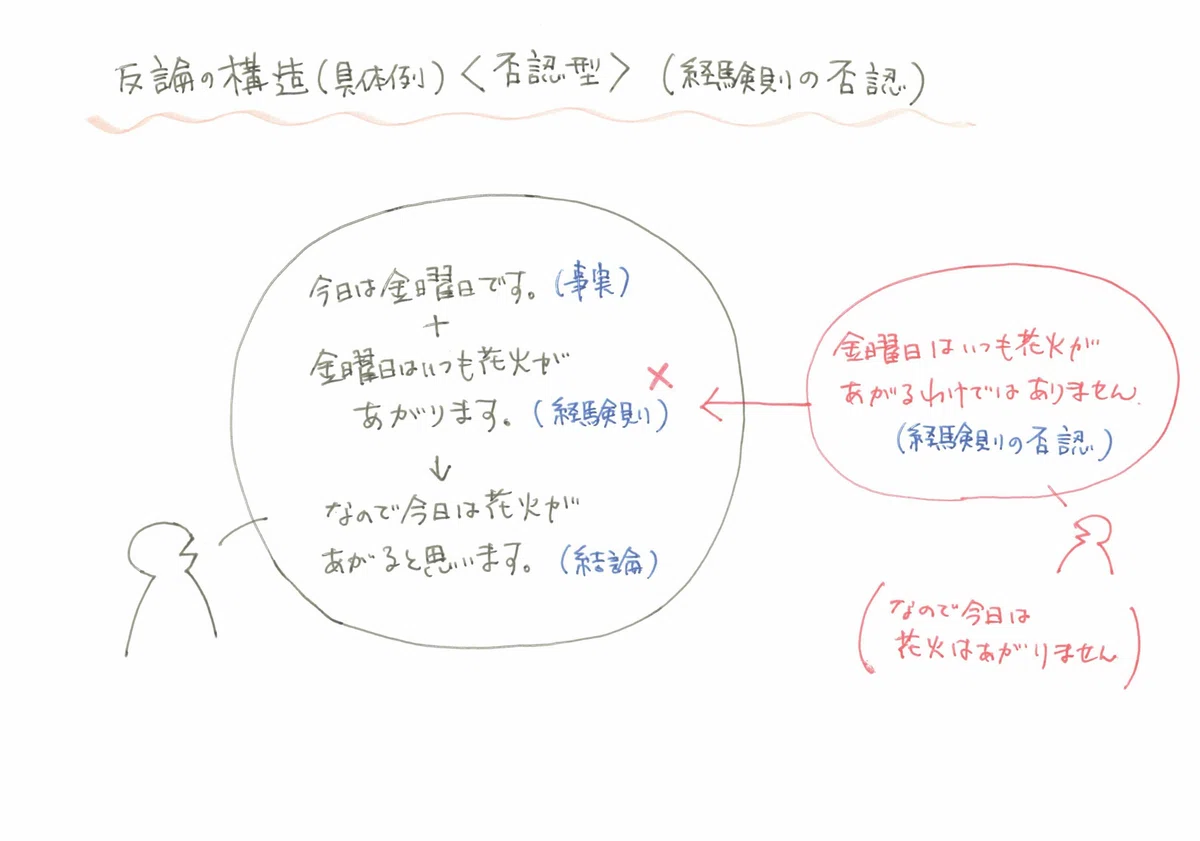 反論の構造(具体例)〈否認型〉(経験則の否認)
今日は金曜日です。(事実)
+
金曜日はいつも花火が
あがります。(経験則)
↓
なので今日は花火が
あがると思います。(結論)
×
金曜日はいつも花火が
あがるわけではありません。
(経験則の否認)
(なので今日は
花火はあがりません)